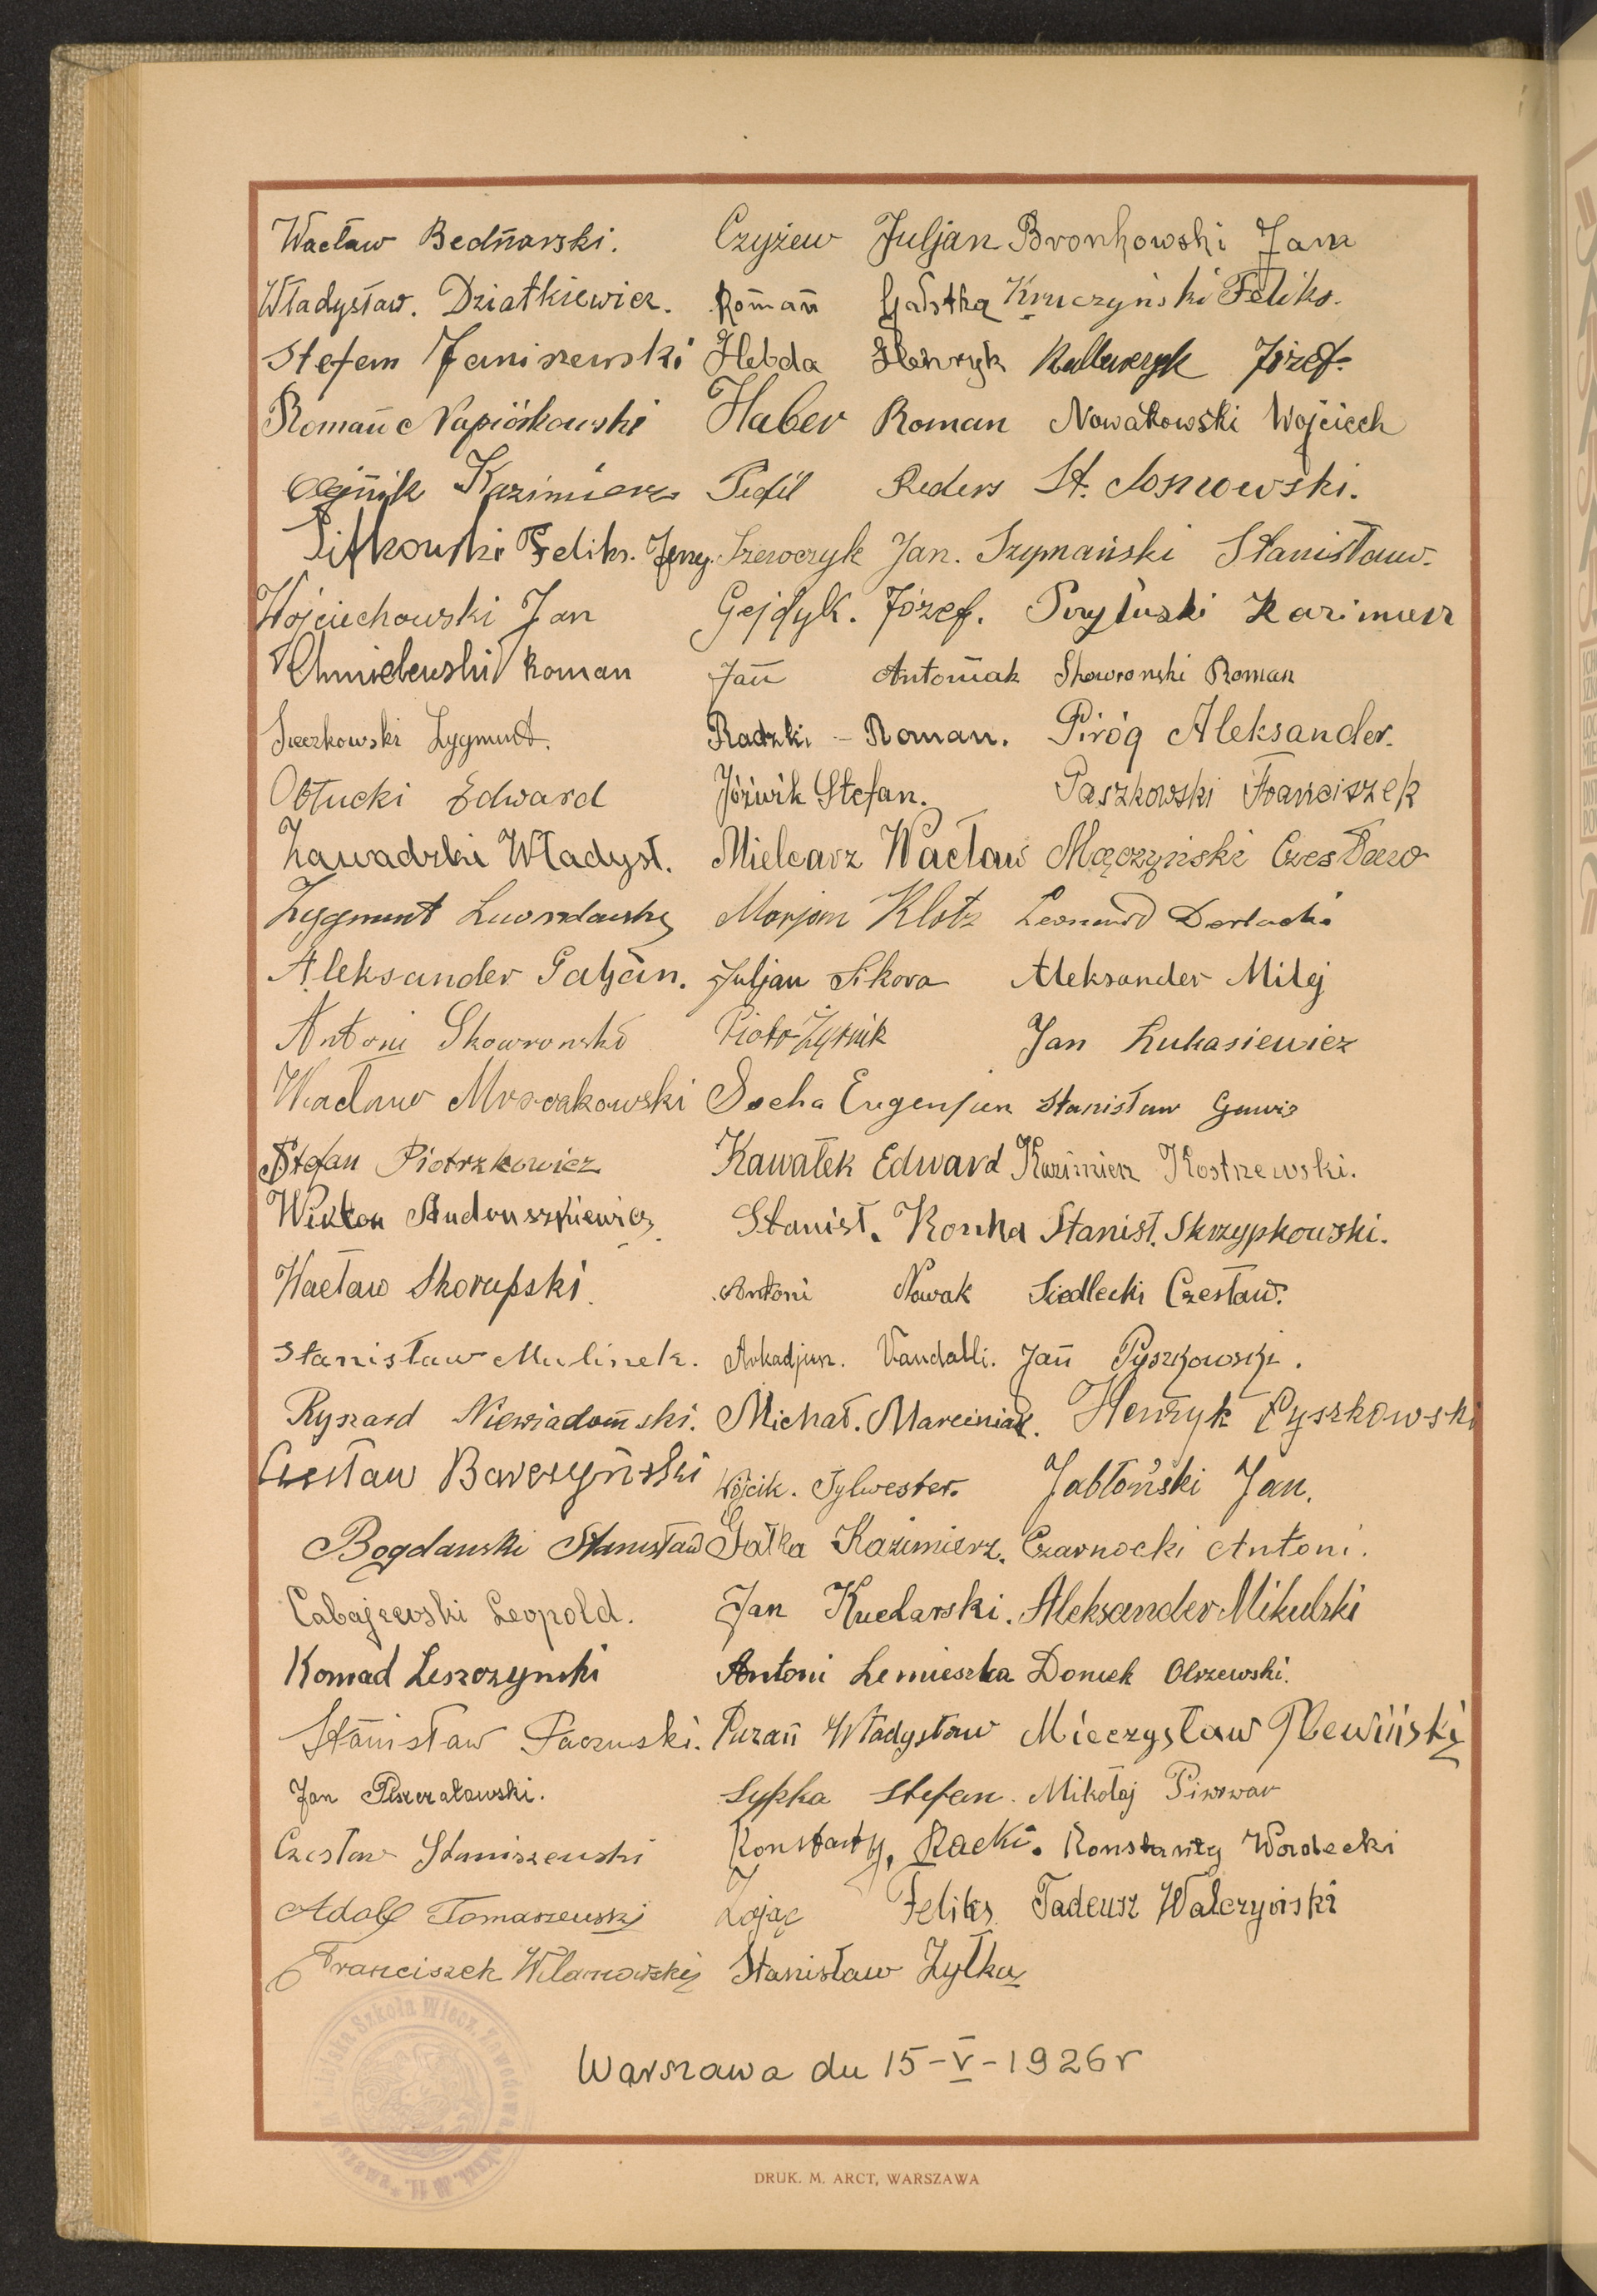 Wacław Bednarski. Czyżew Juljan Bronkowski Jan
Władysław. Dziatkiewicz. Roman Gałstka Kruczyński Feliks.
Stefan Janiszewski Hebda Henryk Józef.
Roman Napiórkowski Haber Roman Nowakowski Wojciech
Olejnik Kazimierz Reders St. Sosnowski.
Feliks. Jerzy. Szewczyk Jan. Szymański Stanisław.
Wojciechowski Jan Gejdyk. Józef. Przyłuski Kazimierz
Chmielewski Roman Jan Antoniak Skowronski Roman
Sieczkowski Zygmunt. Radzki - Roman. Piróg Aleksander.
Obłucki Edward Jóźwik Stefan. Paszkowski Franciszek
Zawadzki Władysł. Mielcarz Wacław Mączyński Czesław
Zygmunt Marjan Klotz Leonard Dorlacki
Aleksander Galjan. Juljan Sikora Aleksander Milej
Antoni Skowronski Piotr Żytnik Jan Łukasiewicz
Wacław Mroczkowski Socha Eugenjusz Stanisław
Stefan Piotrzkowicz Kawałek Edward Kazimierz Kostrzewski.
Wiktor Andruszkiewicz Stanisł. Konka Stanisł. Skrzypkowski.
Wacław Skorupski. Antoni Nowak Siedlecki Czesław.
Stanisław Mulinek. Arkadjusz. Vandalli. Jan Pyszkowski.
Ryszard Niewiadomski. Michał. Marciniak. Henryk Pyszkowski
Czesław Barczyński Wójcik. Sylwester. Jabłoński Jan.
Bogdanski Stanisław Gałka Kazimierz. Czarnocki Antoni.
Cabajewski Leopold. Jan Kucharski. Aleksander Mikulski
Konrad Leszczynski Antoni Lemieszka Domek Olszewski.
Stanisław Paczuski. Puzan Władysław Mieczysław Plewiński
Jan Pszczałowski. Sypka Stefan. Mikołaj Piwowar
Czesław Staniszewski Konstanty, Racki. Konstanty Wardecki
Adolf Tomaszewski Zając Feliks Tadeusz Walczyński
Franciszek Wilanowski Stanisław Żyłka
Warszawa dn 15-V-1926r
DRUK. M. ARCT, WARSZAWA